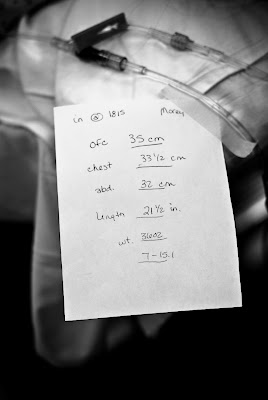 in @ 1815
ofc 35 cm
chest 33 1/2 cm
abd. 32 cm
length 21 1/2 in.
wt. 3602
7-15.1